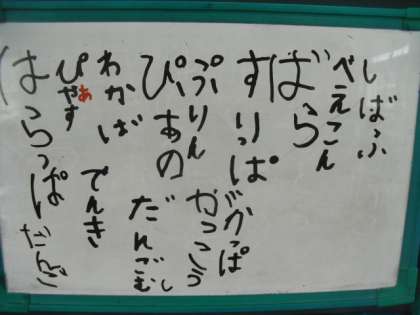 しばふ
べえこん
ばら
すりっぱ
ぷりん
がっこう
ぴあの
だんごむし
わかば
でんき
ぴやす
ぁ
はらっぱ